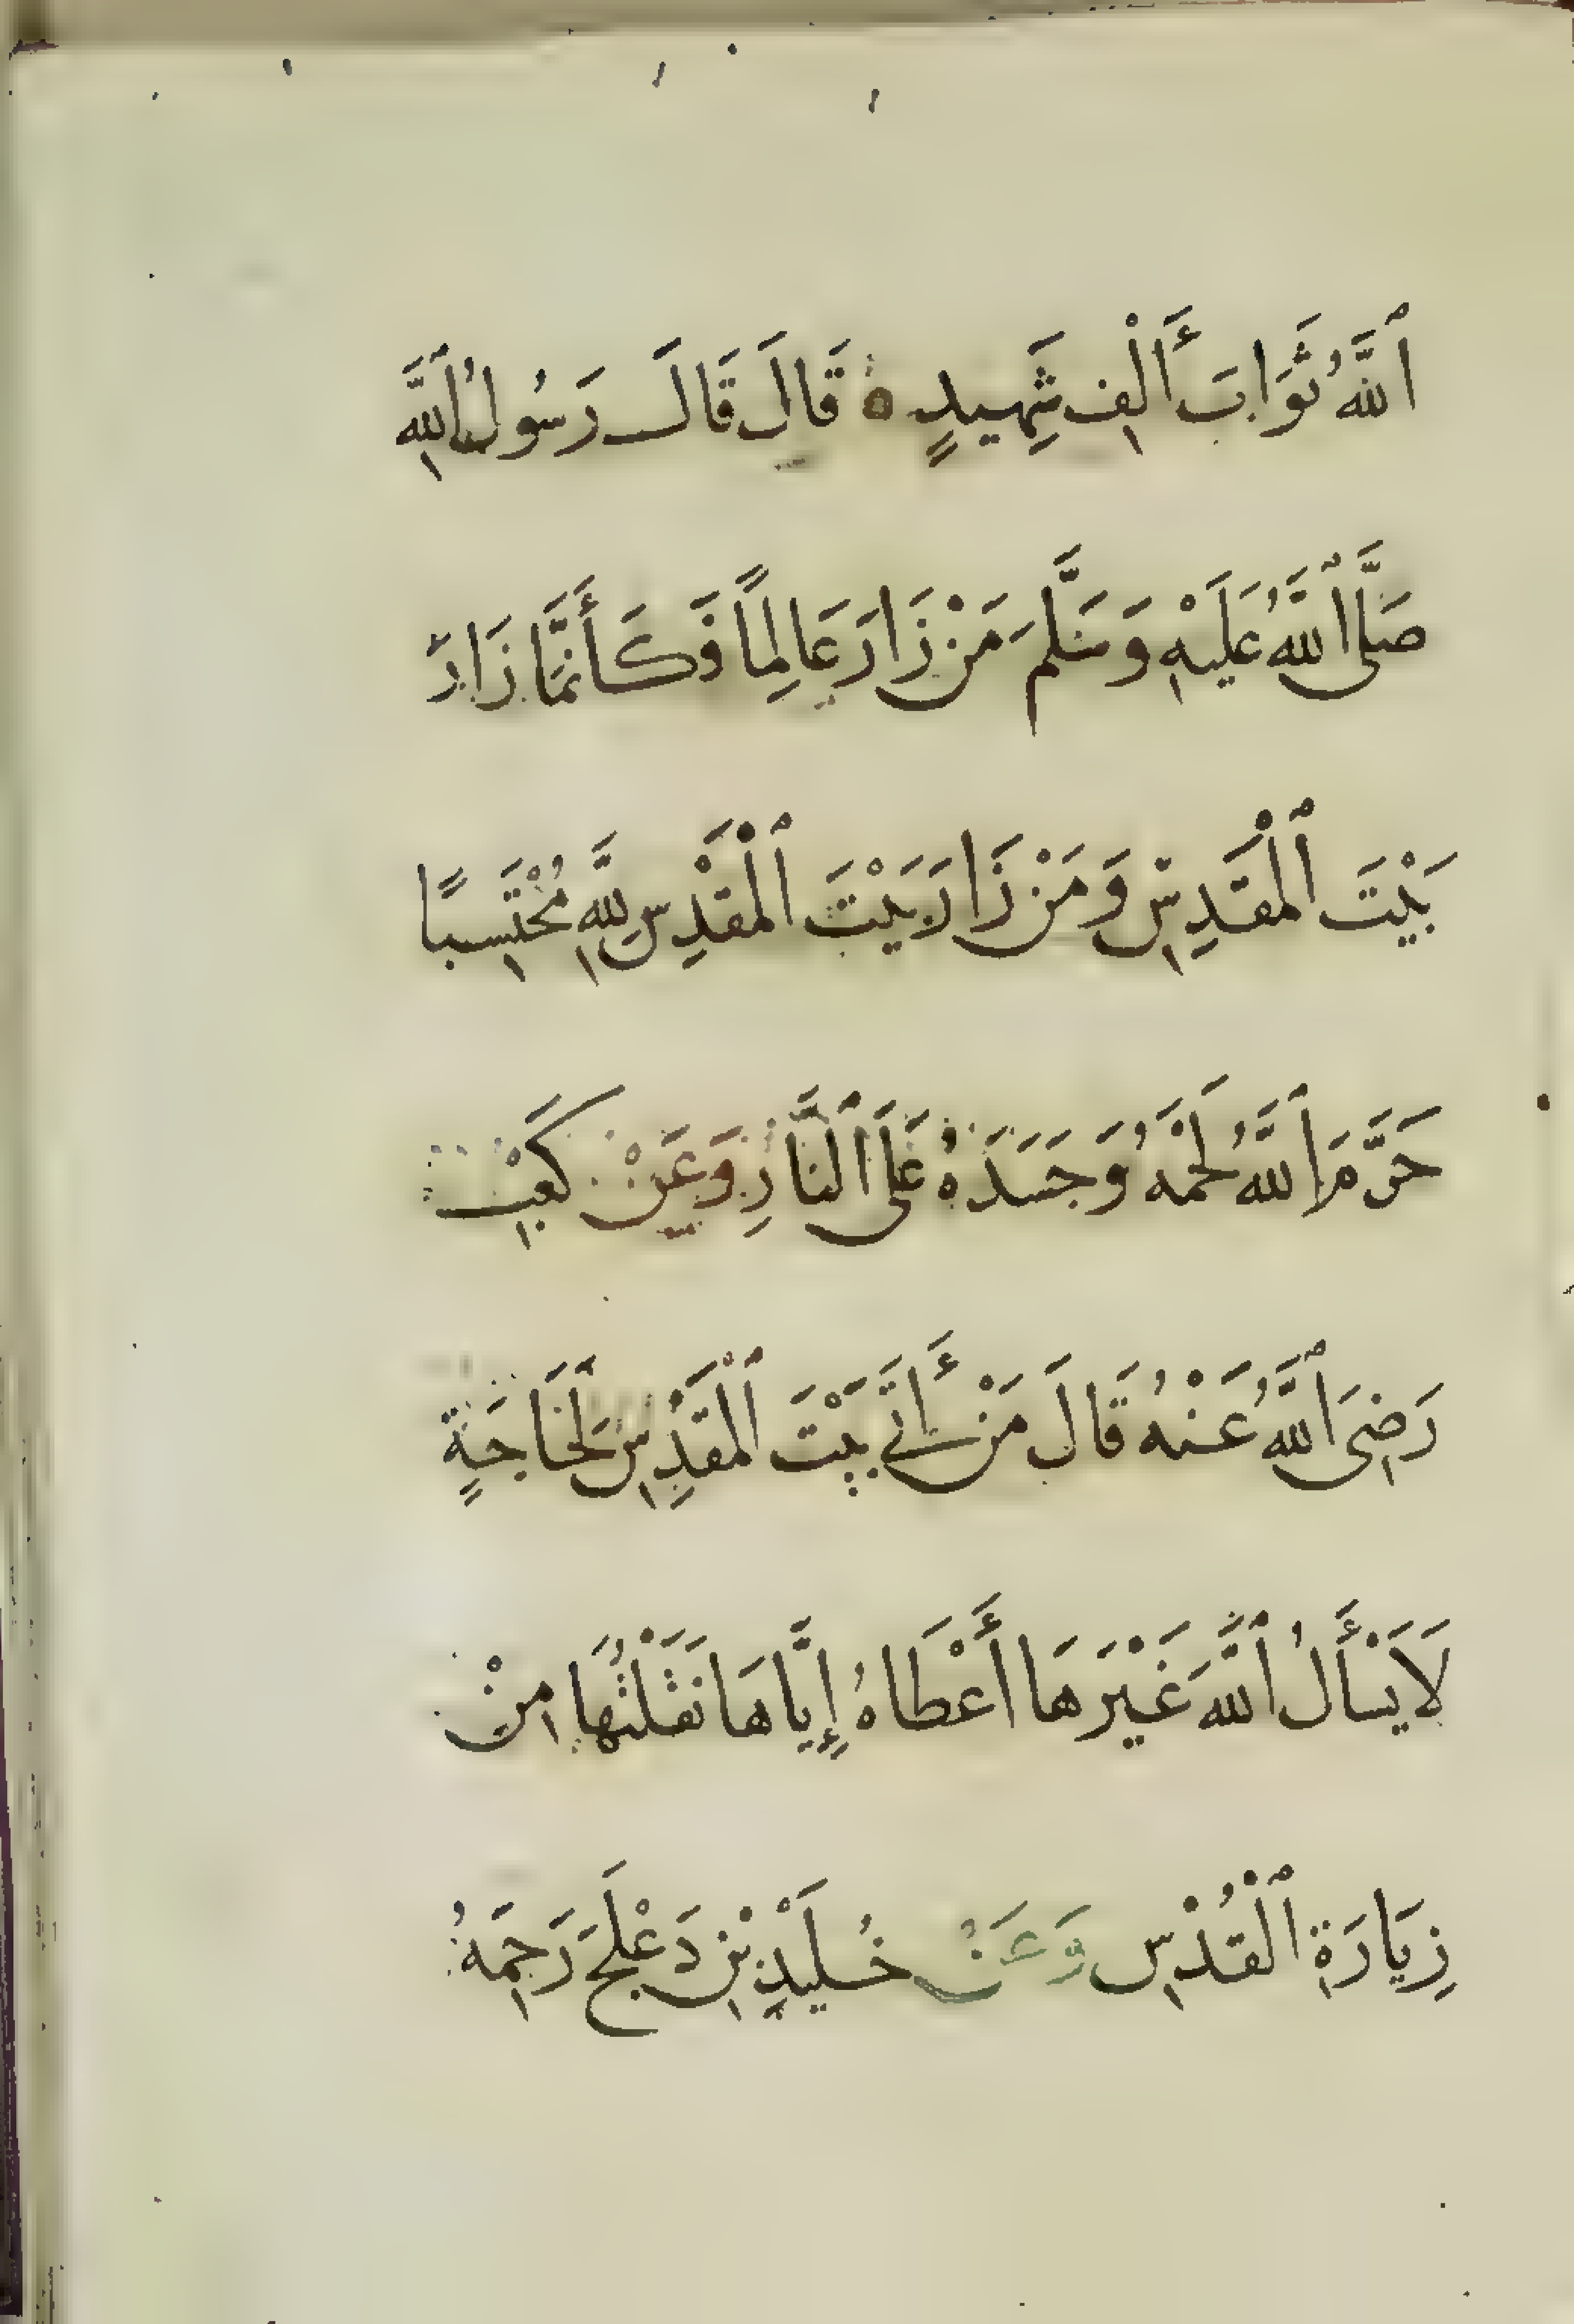 ٱللَّهُ ثَوَابَ أَلْفِ شَهِيدٍ ه قَالَ قَالَ رَسُولُ ٱللَّهِ
صَلَّى ٱللَّهُ عَلَيْهِ وَسَلَّمَ مَنْ زَارَ عَالِمًا فَكَأَنَّمَا زَارَ
بَيْتَ ٱلْمَقْدِسِ وَمَنْ زَارَ بَيْتَ ٱلْمَقْدِسِ لِلَّهِ مُحْتَسِبًا
حَرَّمَ ٱللَّهُ لَحْمَهُ وَجَسَدَهُ عَلَى ٱلنَّارِ وَعَنْ كَعْبٍ
رَضِيَ ٱللَّهُ عَنْهُ قَالَ مَنْ أَتَى بَيْتَ ٱلْمَقْدِسِ لِحَاجَةٍ
لَا يَسْأَلُ ٱللَّهَ غَيْرَهَا أَعْطَاهُ إِيَّاهَا نَقَلْتُهَا مِنْ
زِيَارَةِ ٱلْقُدْسِ وَعَنْ خُلَيْدِ بْنِ دَعْلَجَ رَحِمَهُ